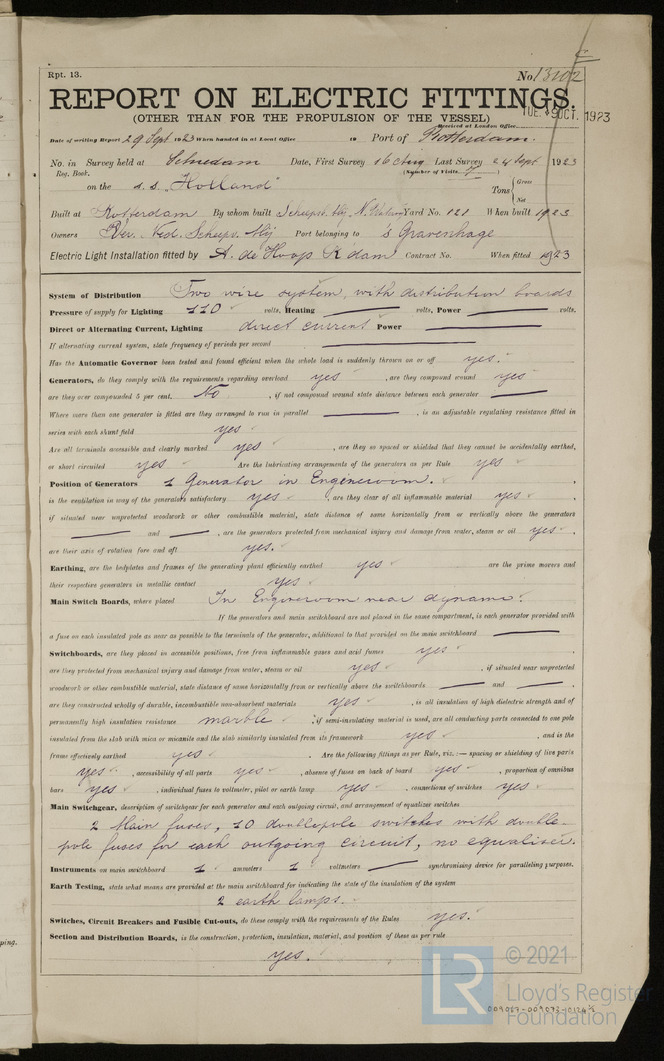 Rpt. 13.
No. 13102
REPORT ON ELECTRIC FITTINGS.
TUE. 9 OCT. 1923
(OTHER THAN FOR THE PROPULSION OF THE VESSEL)
Received at London Office
Date of writing Report 29 Sept 1923 When handed in at Local Office 19 Port of Rotterdam.
No. in Survey held at Schiedam Date, First Survey 16 Aug Last Survey 24 Sept 1923
Reg. Book. (Number of Visits 7)
on the s.s. "Holland" Tons { Gross
Net
Built at Rotterdam By whom built Scheepsb. Mij. N. Waterweg Yard No. 121 When built 1923
Owners Ver. Ned. Scheepv. Mij Port belonging to 's Gravenhage
Electric Light Installation fitted by A. de Hoop R'dam Contract No. When fitted 1923
System of Distribution Two wire system, with distribution boards
Pressure of supply for Lighting 110 volts, Heating — volts, Power — volts.
Direct or Alternating Current, Lighting direct current Power —
If alternating current system, state frequency of periods per second —
Has the Automatic Governor been tested and found efficient when the whole load is suddenly thrown on or off yes.
Generators, do they comply with the requirements regarding overload yes , are they compound wound yes
are they over compounded 5 per cent. No , if not compound wound state distance between each generator —
Where more than one generator is fitted are they arranged to run in parallel — , is an adjustable regulating resistance fitted in
series with each shunt field yes
Are all terminals accessible and clearly marked yes , are they so spaced or shielded that they cannot be accidentally earthed,
or short circuited yes Are the lubricating arrangements of the generators as per Rule yes
Position of Generators 1 Generator in Engineroom.
is the ventilation in way of the generators satisfactory yes , are they clear of all inflammable material yes
if situated near unprotected woodwork or other combustible material, state distance of same horizontally from or vertically above the generators
— and — , are the generators protected from mechanical injury and damage from water, steam or oil yes
are their axis of rotation fore and aft yes.
Earthing, are the bedplates and frames of the generating plant efficiently earthed yes are the prime movers and
their respective generators in metallic contact yes
Main Switch Boards, where placed In Engineroom near dynamo.
If the generators and main switchboard are not placed in the same compartment, is each generator provided with
a fuse on each insulated pole as near as possible to the terminals of the generator, additional to that provided on the main switchboard —
Switchboards, are they placed in accessible positions, free from inflammable gases and acid fumes yes
are they protected from mechanical injury and damage from water, steam or oil yes , if situated near unprotected
woodwork or other combustible material, state distance of same horizontally from or vertically above the switchboards — and — ,
are they constructed wholly of durable, incombustible non-absorbent materials yes , is all insulation of high dielectric strength and of
permanently high insulation resistance marble , if semi-insulating material is used, are all conducting parts connected to one pole
insulated from the slab with mica or micanite and the slab similarly insulated from its framework yes , and is the
frame effectively earthed yes . Are the following fittings as per Rule, viz.:— spacing or shielding of live parts
yes , accessibility of all parts yes , absence of fuses on back of board yes , proportion of omnibus
bars yes , individual fuses to voltmeter, pilot or earth lamp yes , connections of switches yes
Main Switchgear, description of switchgear for each generator and each outgoing circuit, and arrangement of equalizer switches
2 Main fuses, 10 doublepole switches with double-
pole fuses for each outgoing circuit, no equaliser.
Instruments on main switchboard 1 ammeters 1 voltmeters — synchronising device for paralleling purposes.
Earth Testing, state what means are provided at the main switchboard for indicating the state of the insulation of the system
2 earth lamps.
Switches, Circuit Breakers and Fusible Cut-outs, do these comply with the requirements of the Rules yes.
Section and Distribution Boards, is the construction, protection, insulation, material, and position of these as per rule
yes.
ping.
LR
© 2021
Lloyd's Register
Foundation